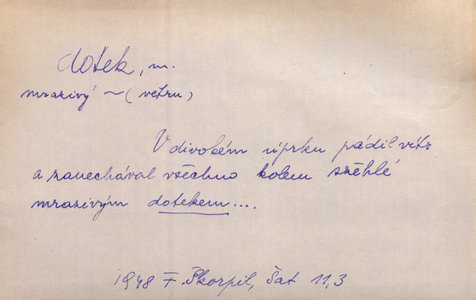 dotek, m.
mrazivý ~ (větru)
V divokém úprku pádil vítr
a zanechával všechno kolem zšeřlé
mrazivým dotekem....
1948 F. Škorpil, Šat 11,3